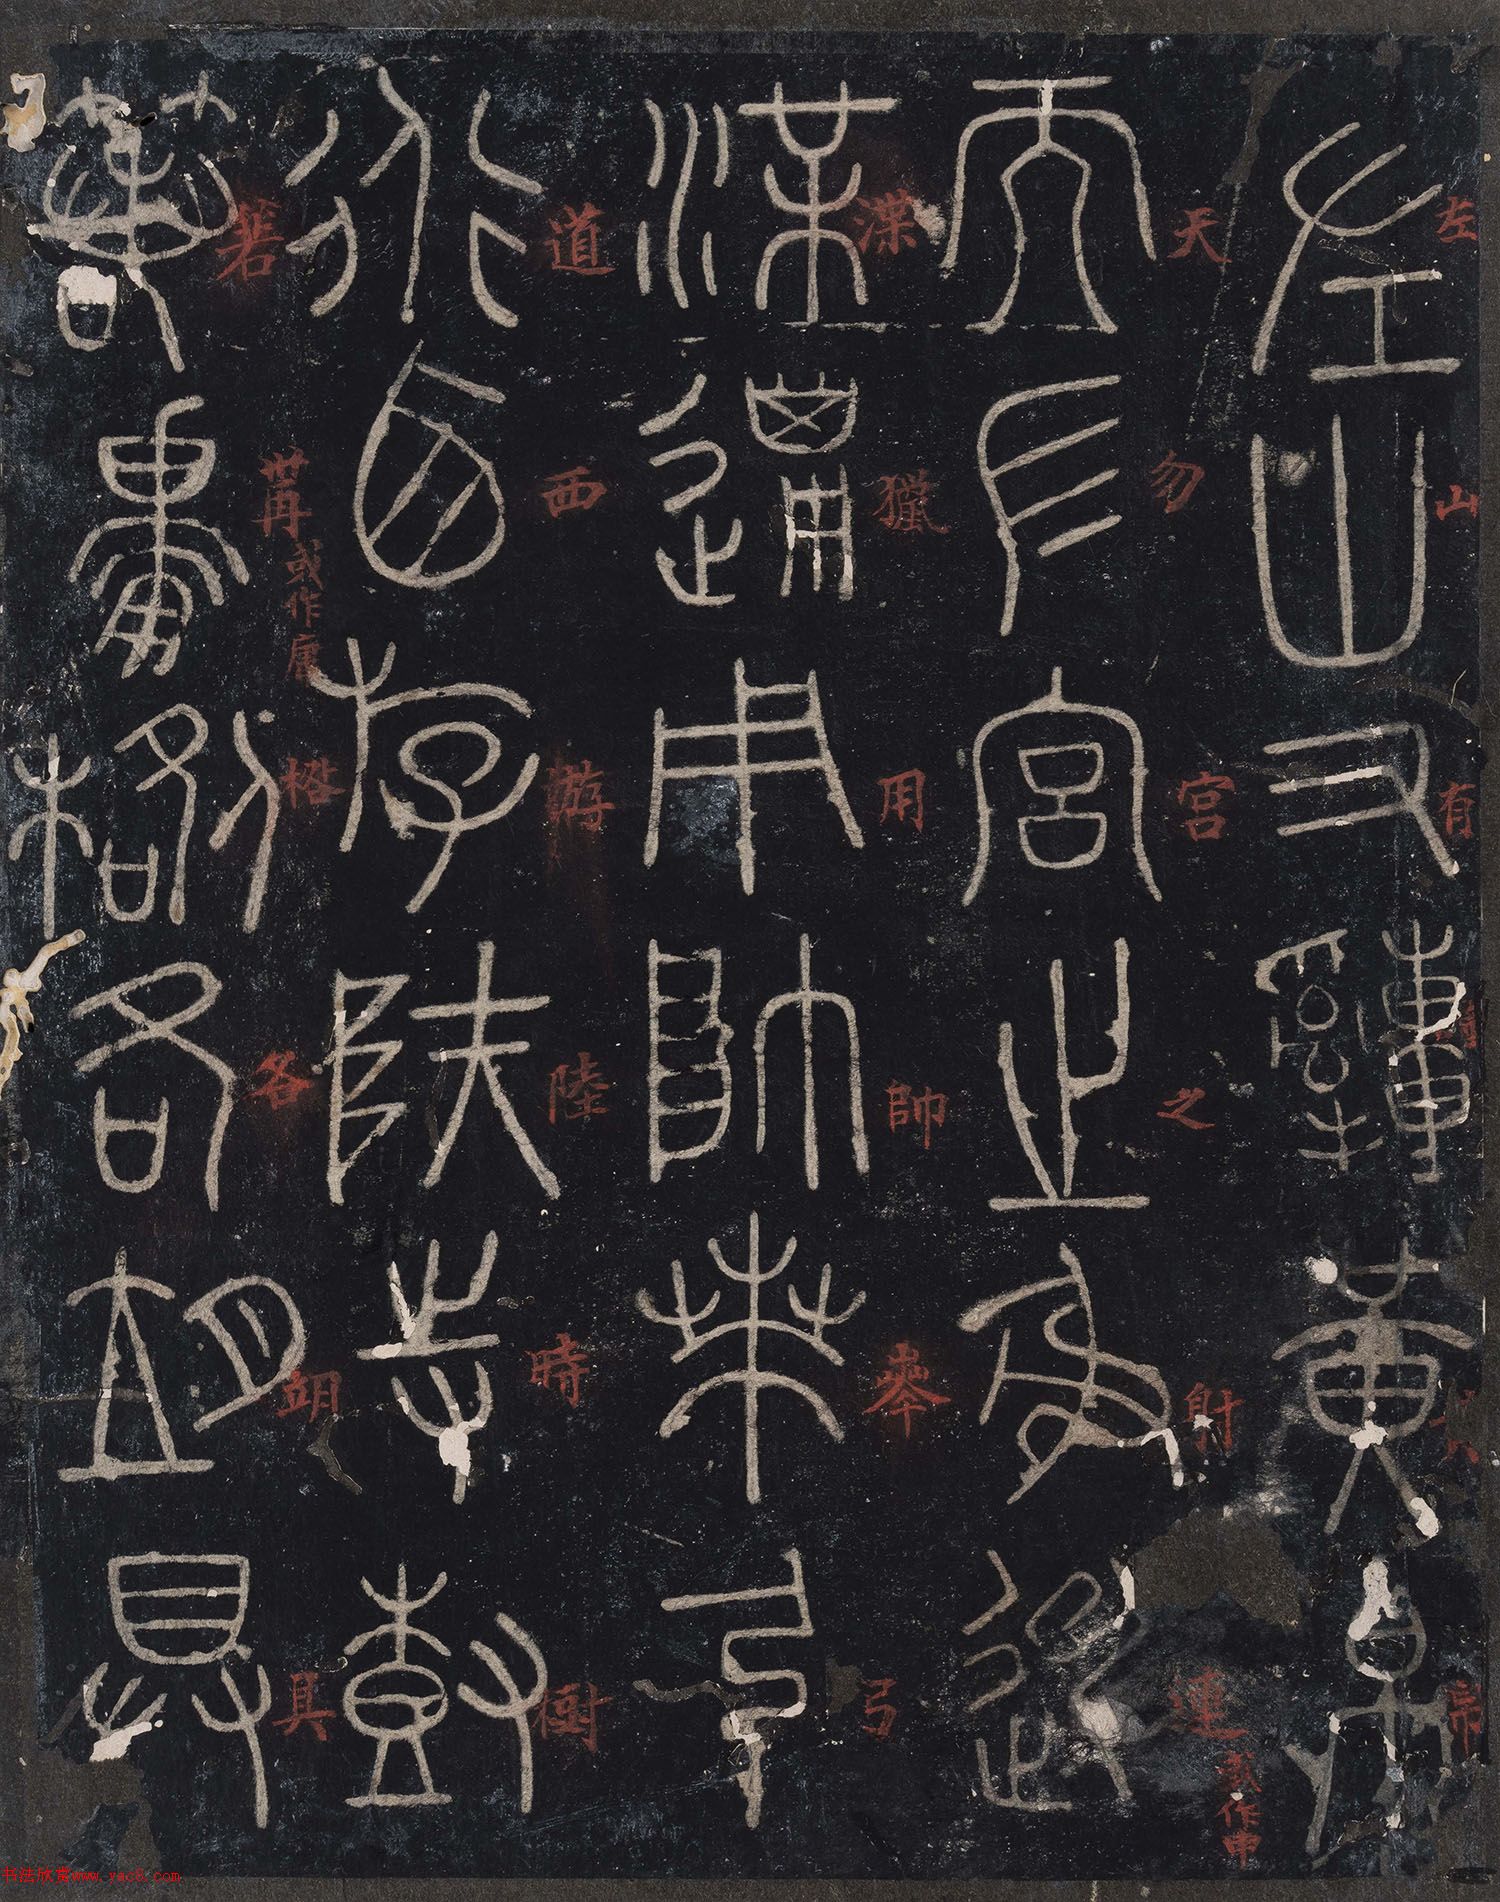 左山有黃
天勿宮之射連或作申
渫獵用帥弓
道西游陸時樹
若冓或作庸格各翊具
书法欣赏www.yac8.com